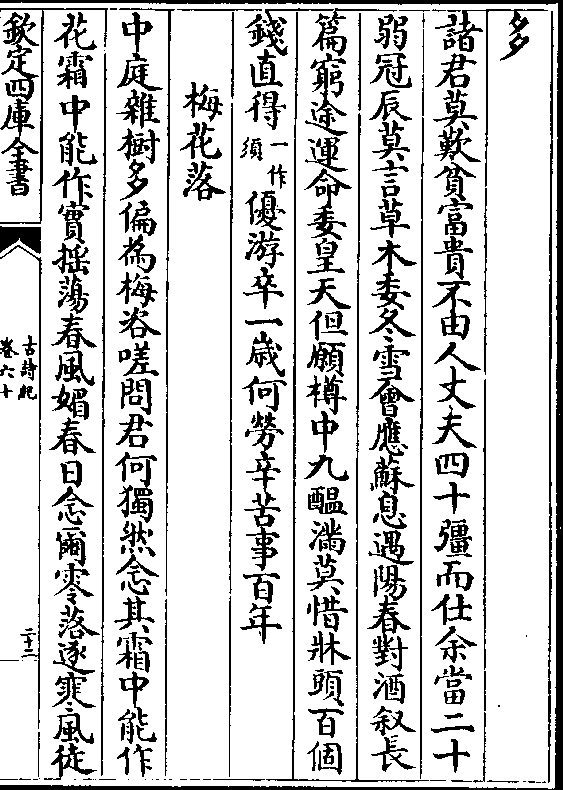 多
諸君莫歎貧富貴不由人丈夫四十彊而仕余當二十
弱冠辰莫言草木委冬雪㑹應蘇息遇陽春對酒叙長
篇窮途運命委皇天但願樽中九醖満莫惜牀頭百個
錢直得一作須優游卒一歳何勞辛苦事百年
梅花落
中庭雜樹多偏為梅咨嗟問君何獨然念其霜中能作
花霜中能作實揺蕩春風媚春日念爾零落逐寒風徒
欽定四庫全書
古詩紀
卷六十
二十二